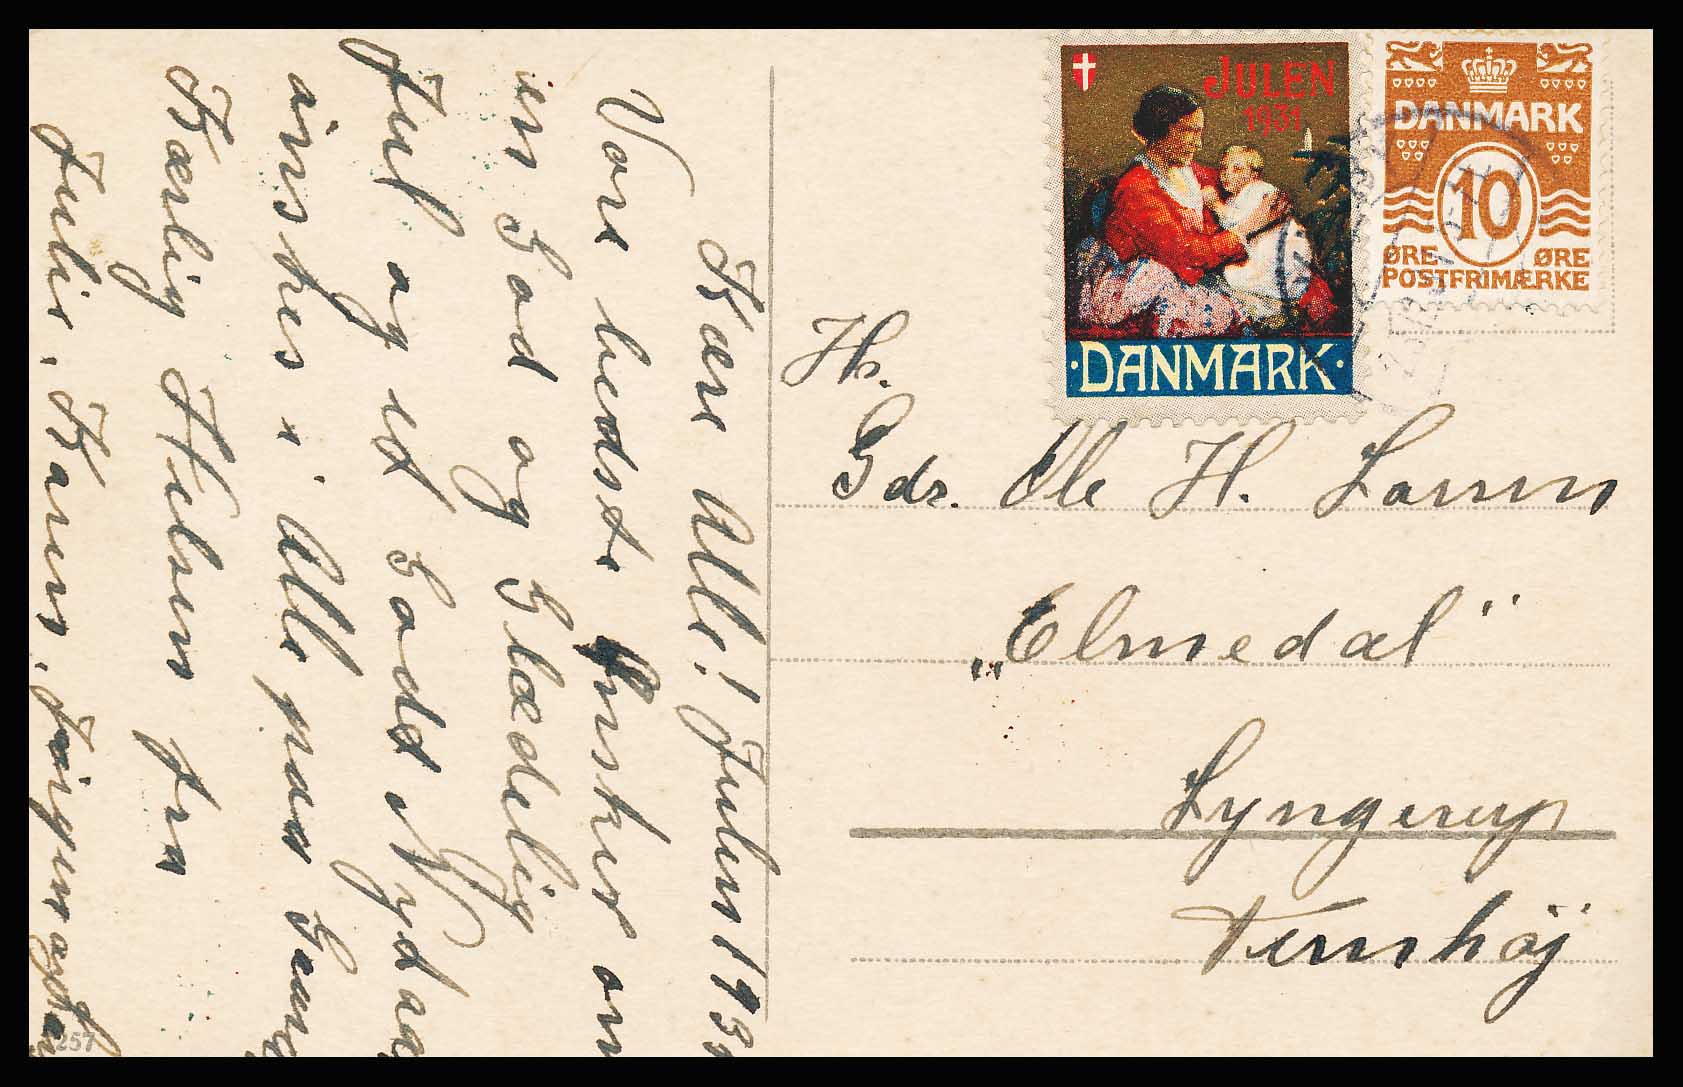 Kære Alle! Julen 193
Vore bedste Ønsker om
en God og Glædelig
Jul og et Godt Nytaar
ønskes i Alle paa Gaard
Kærlig Hilsen fra
Julie, Karen, Jørgen
257
JULEN
1931
DANMARK
DANMARK
10
ØRE ØRE
POSTFRIMÆRKE
Hr.
Gdr. Ole H. Larsen
„Elmedal"
Lyngerup
Ternhøj